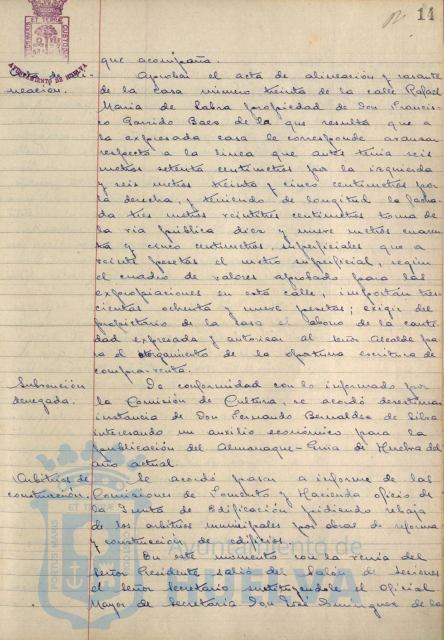 14
AYUNTAMIENTO DE HUELVA
que acompaña.
neación.
Aprobar el acta de alineación y rasante
de la casa número treinta de la calle Rafael
María de Labra propiedad de Don Francis-
co Garrido Baes de la que resulta que a
la expresada casa le corresponde avanzar
respecto a la línea que antes tenía seis
metros setenta centímetros por la izquierda
y seis metros treinta y cinco centímetros por
la derecha, y teniendo de longitud la facha-
da tres metros veintitres centímetros toma de
la vía pública diez y nueve metros cuaren-
ta y cinco centímetros, superficiales que a
veinte pesetas el metro superficial, según
el cuadro de valores aprobado para las
expropiaciones en esta calle, importan tres-
cientas ochenta y nueve pesetas; exigir del
propietario de la casa el abono de la canti-
dad expresada y autorizar al señor Alcalde pa-
ra el otorgamiento de la oportuna escritura de
compra-venta.
Subvención
denegada.
De conformidad con lo informado por
la Comisión de Cultura, se acordó desestimar
instancia de Don Fernando Bermúdez de Silva
interesando un auxilio económico para la
publicación del Almanaque-Guía de Huelva del
año actual.
Arbitrios de
construcción.
Se acordó pasar a informe de las
Comisiones de Fomento y Hacienda oficio de
la Junta de Edificación pidiendo rebaja
de los arbitrios municipales por obras de reforma
y construcción de edificios.
En este momento con la venia del
Señor Presidente salió del Salón de Sesiones
el señor Secretario sustituyéndole el Oficial
Mayor de Secretaría Don José Domínguez de la
Ayuntamiento de
HUELVA